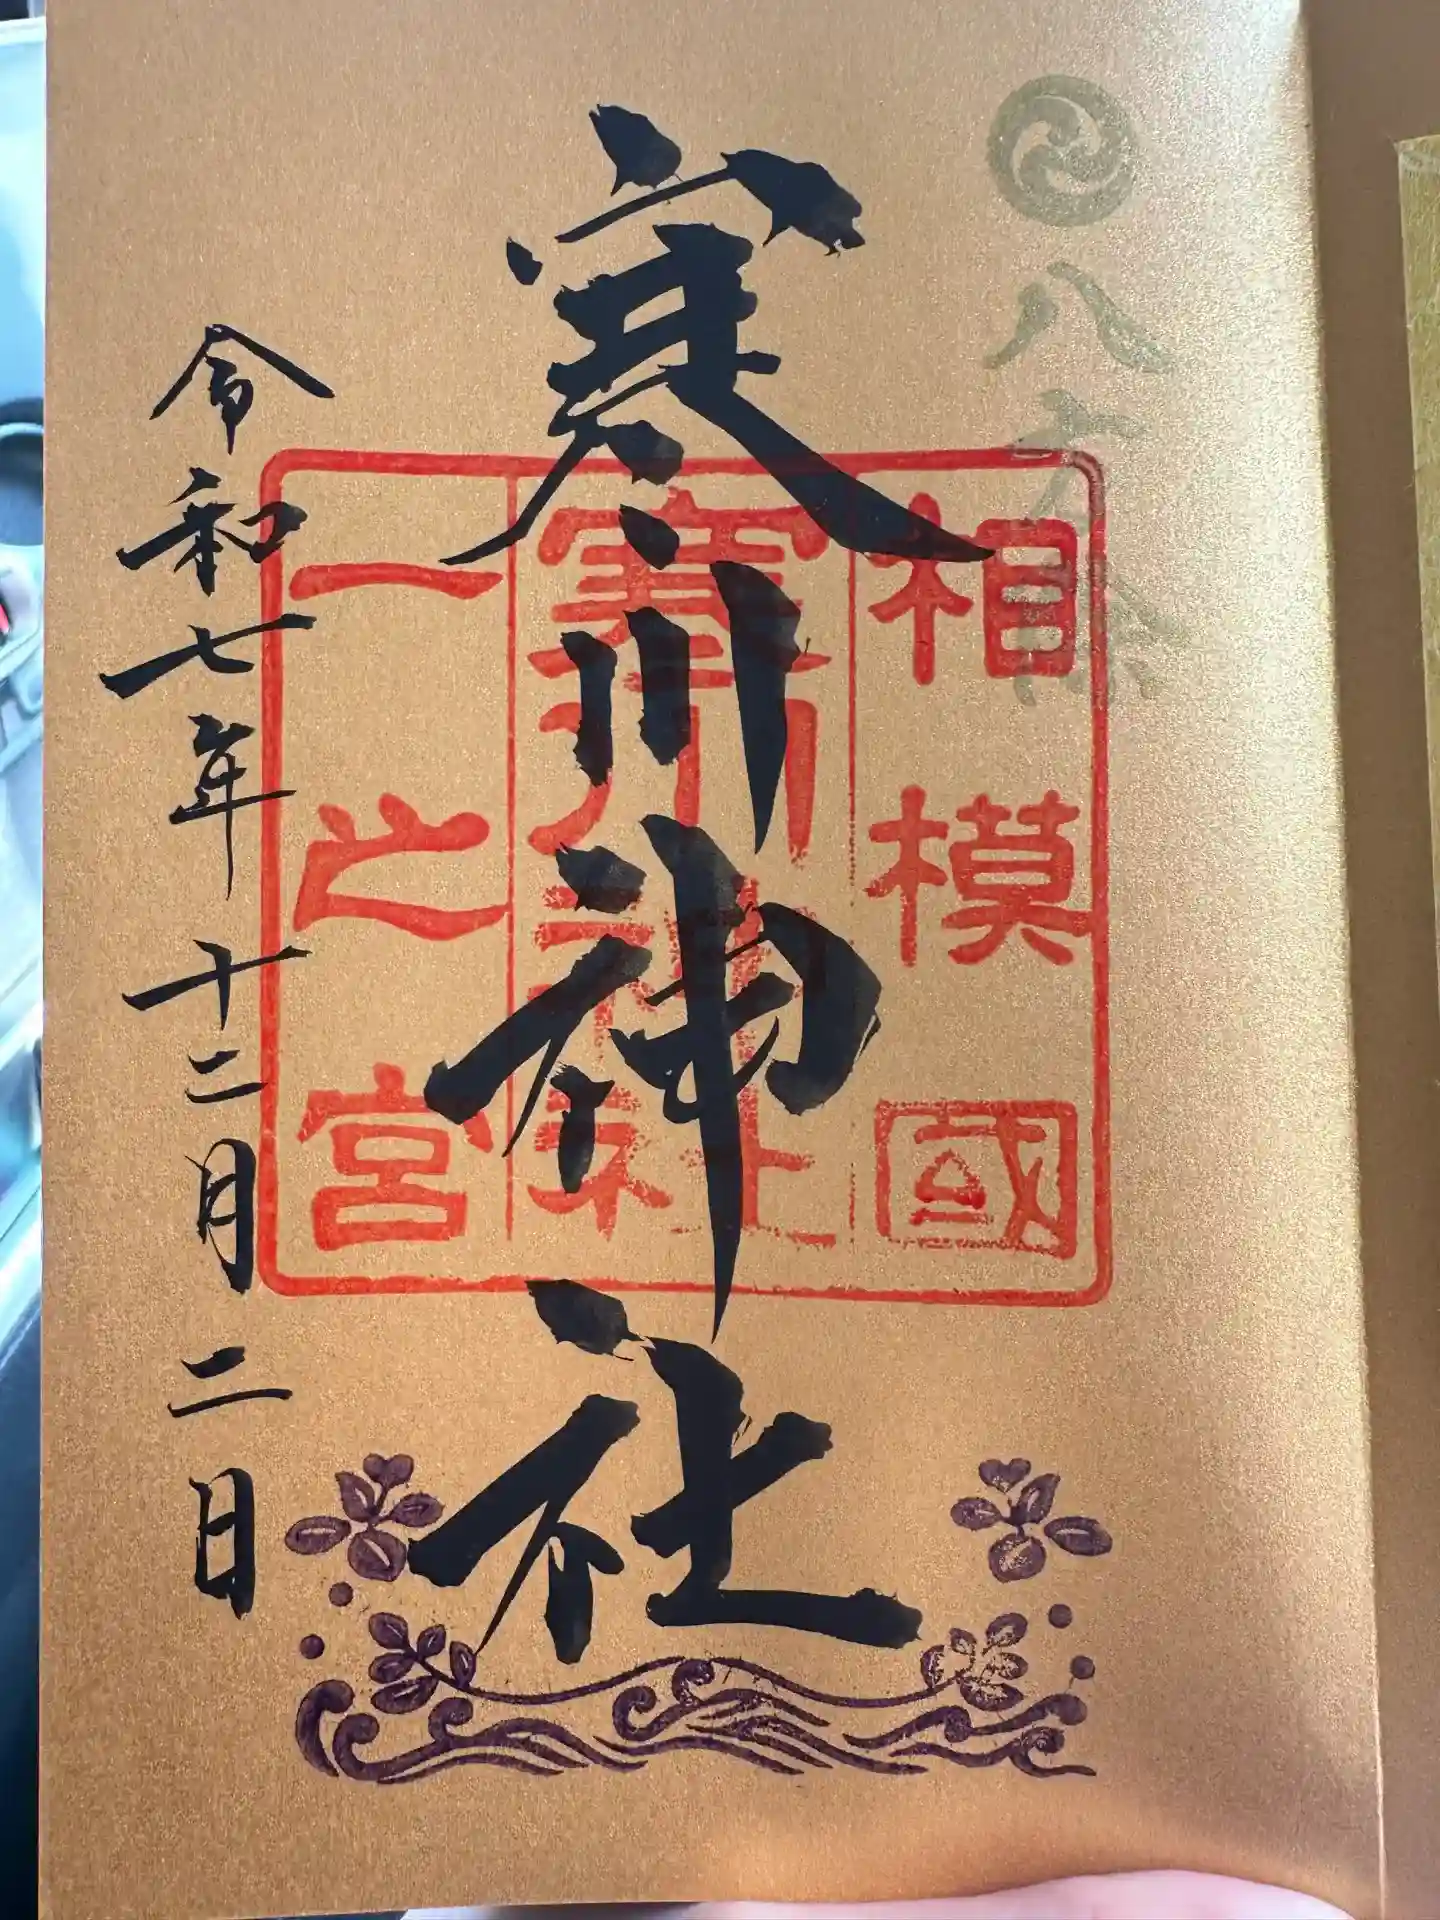 八方除
相模國
寒川神社
寒川神社
一之宮
令和七年十二月二日